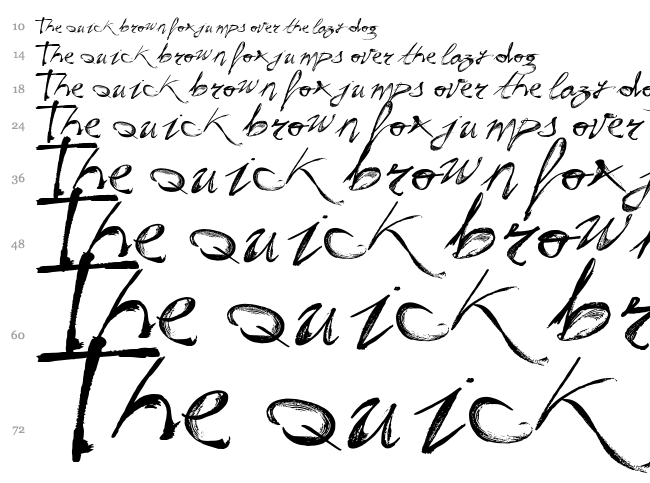 10 The quick brown fox jumps over the lazy dog
14 The quick brown fox jumps over the lazy dog
18 The quick brown fox jumps over the lazy do
24 The quick brown fox jumps over
36 The quick brown fox j
48 The quick brown
60 The quick br
72 The quick